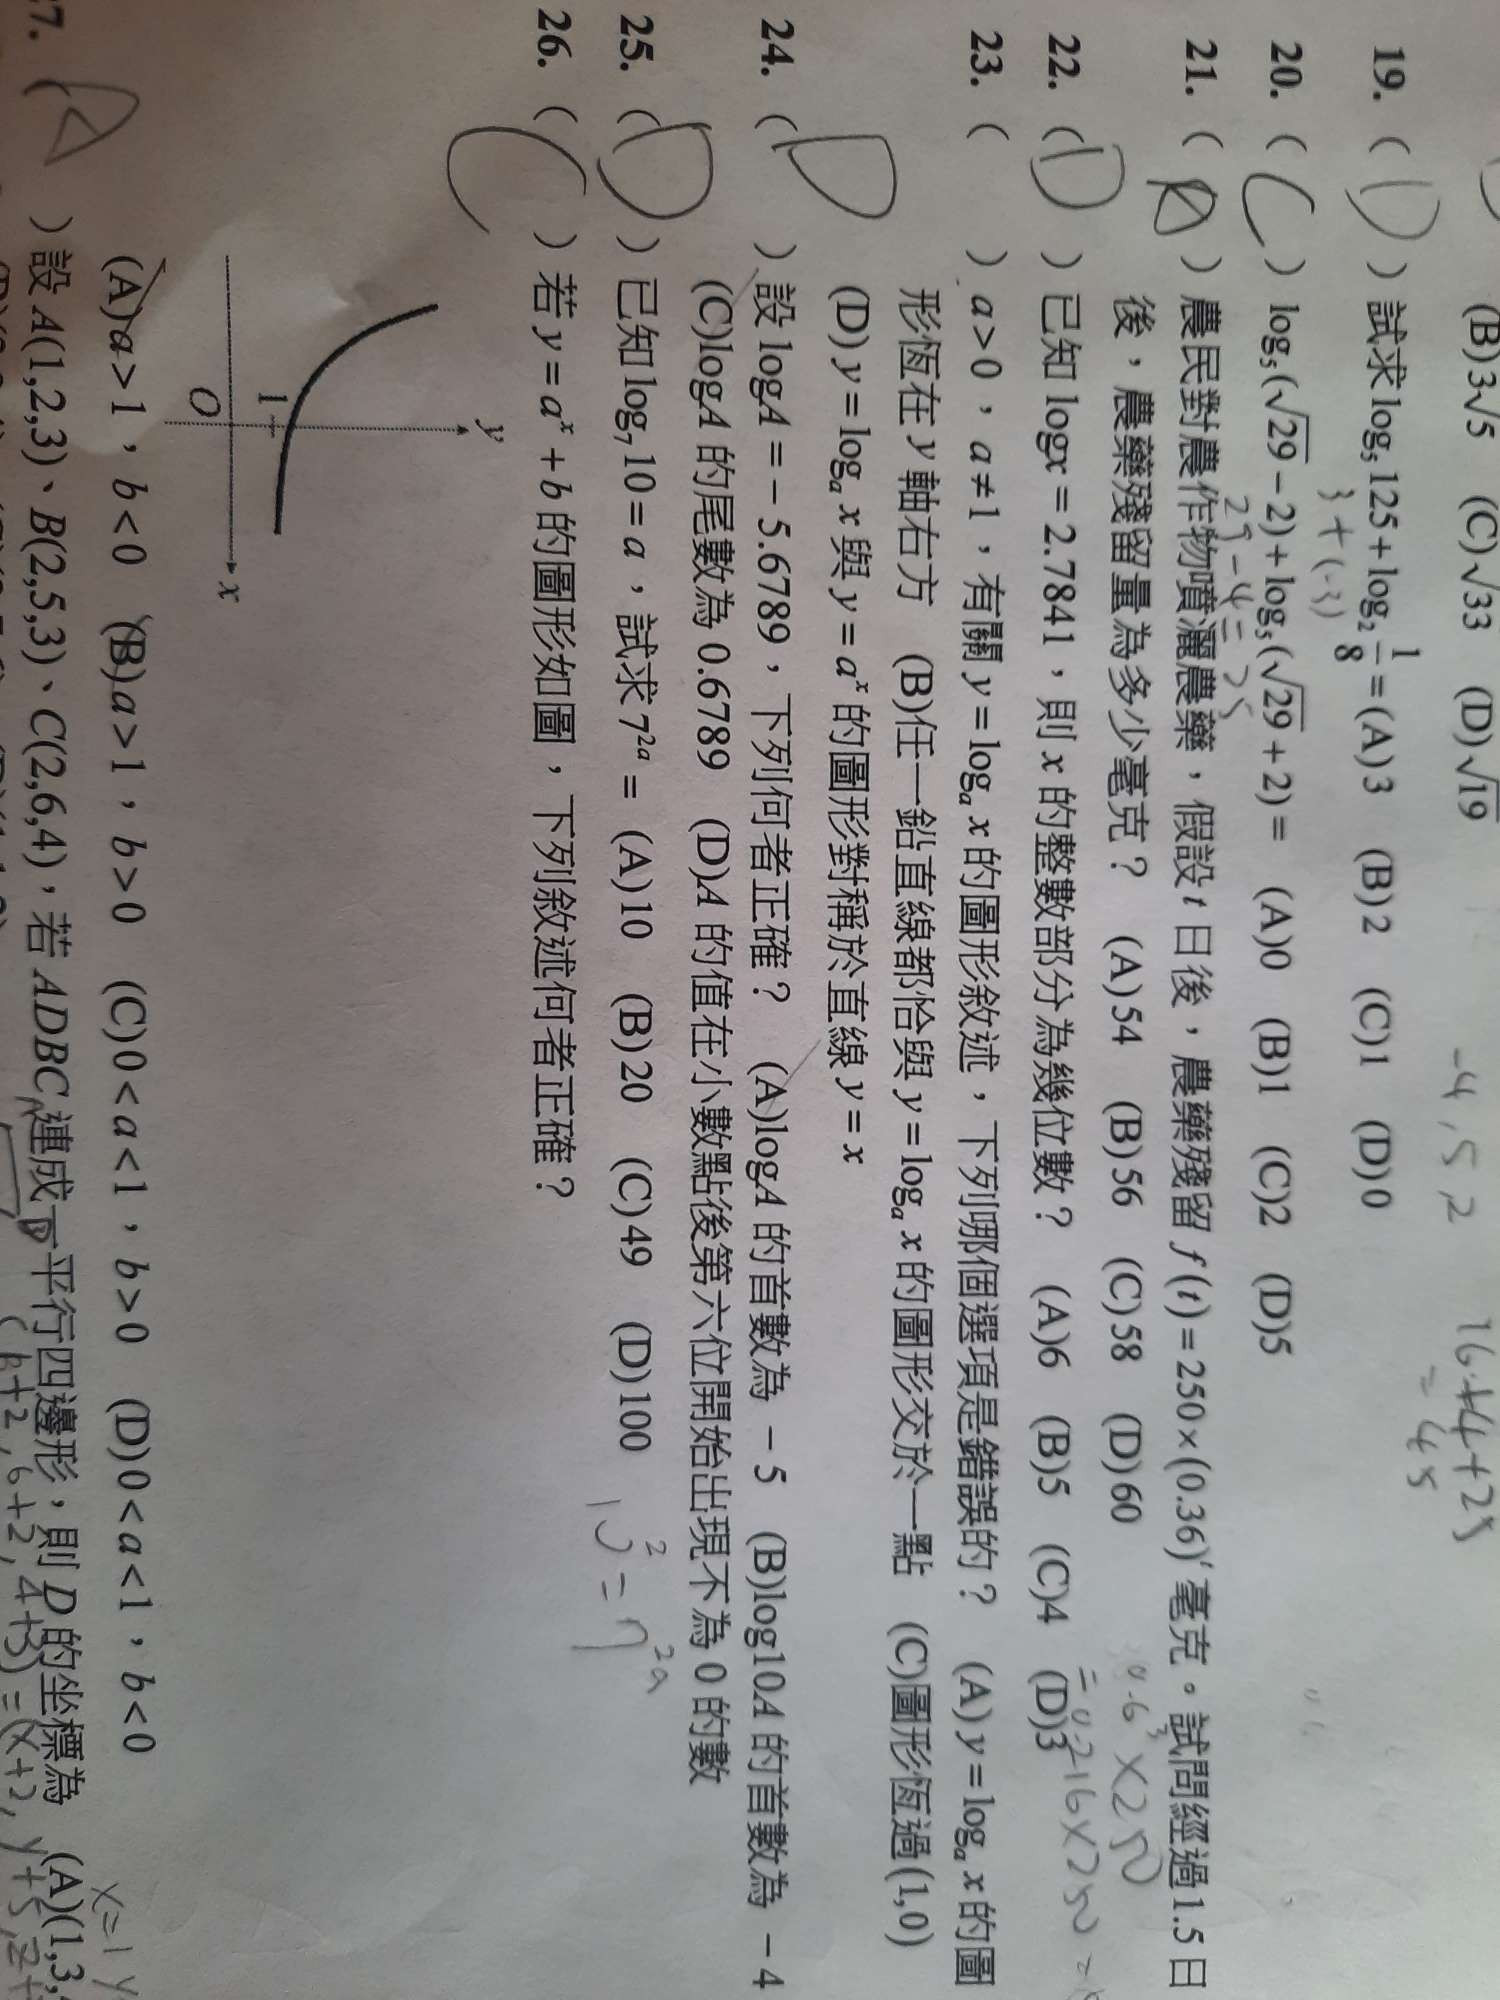 (B)3√5 (C)√33 (D)√19
-4, 5, 2
16+4+25
= 45
19. ( D ) 試求 log₅125+log₂ 1/8 = (A)3 (B)2 (C)1 (D)0
3+(-3)
20. ( C ) log₅(√29−2)+log₅(√29+2)= (A)0 (B)1 (C)2 (D)5
29-4=25
21. ( A ) 農民對農作物噴灑農藥，假設 t 日後，農藥殘留 f(t)=250×(0.36)ᵗ 毫克。試問經過1.5日
後，農藥殘留量為多少毫克？ (A)54 (B)56 (C)58 (D)60
0.6³×250
=0.216×250=
22. ( D ) 已知 logx=2.7841，則 x 的整數部分為幾位數？ (A)6 (B)5 (C)4 (D)3
23. ( ) a>0，a≠1，有關 y=logₐx 的圖形敘述，下列哪個選項是錯誤的？ (A) y=logₐx 的圖
形恆在 y 軸右方 (B)任一鉛直線都恰與 y=logₐx 的圖形交於一點 (C)圖形恆過(1,0)
(D) y=logₐx 與 y=aˣ 的圖形對稱於直線 y=x
24. ( D ) 設 logA=−5.6789，下列何者正確？ (A)logA 的首數為 −5 (B)log10A 的首數為 −4
(C)logA 的尾數為 0.6789 (D)A 的值在小數點後第六位開始出現不為 0 的數
25. ( D ) 已知 log₇10=a，試求 7²ᵃ= (A)10 (B)20 (C)49 (D)100
10²=7²ᵃ
26. ( C ) 若 y=aˣ+b 的圖形如圖，下列敘述何者正確？
y
1
O
x
(A)a>1，b<0 (B)a>1，b>0 (C)0<a<1，b>0 (D)0<a<1，b<0
x=1 y
27. ( A ) 設 A(1,2,3)、B(2,5,3)、C(2,6,4)，若 ADBC 連成一平行四邊形，則 D 的坐標為 (A)(1,3,
D
6+2, 4+3)=(x+2, y+